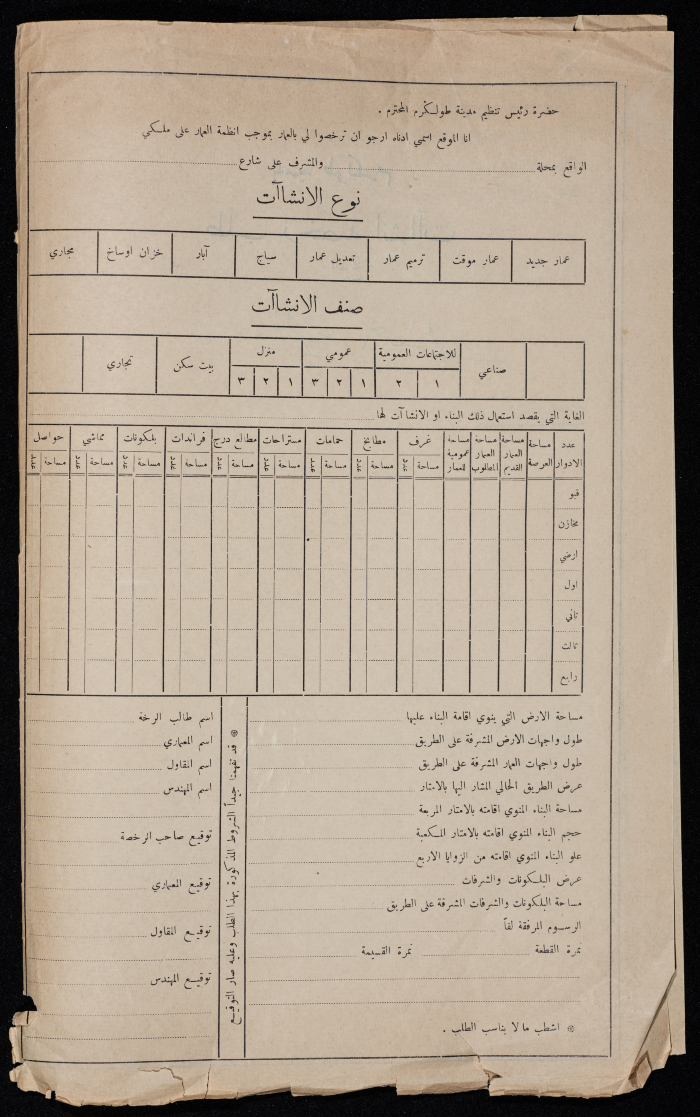 حضرة رئيس تنظيم مدينة طولكرم المحترم .
انا الموقع اسمي ادناه ارجو ان ترخصوا لي بالعمار بموجب انظمة العمار على ملكي
الواقع بمحلة والمشرف على شارع
نوع الانشاآت
عمار جديد عمار موقت ترميم عمار تعديل عمار سياج آبار خزان اوساخ مجاري
صنف الانشاآت
صناعي للاجتماعات العمومية عمومي منزل بيت سكن تجاري
١ ٢ ١ ٢ ٣ ١ ٢ ٣
الغاية التي يقصد استعمال ذلك البناء او الانشاآت لها
عدد الادوار مساحة العرصة مساحة العمار القديم مساحة العمار المطلوب مساحة عمومية للعمار غرف مطابخ حمامات مستراحات مطالع درج فراندات بلكونات مماشي حواصل
مساحة عدد مساحة عدد مساحة عدد مساحة عدد مساحة عدد مساحة عدد مساحة عدد مساحة عدد مساحة عدد
قبو
مخازن
ارضي
اول
ثاني
ثالث
رابع
مساحة الارض التي ينوي اقامة البناء عليها
طول واجهات الارض المشرفة على الطريق
طول واجهات العمار المشرفة على الطريق
عرض الطريق الحالي المشار اليها بالامتار
مساحة البناء المنوي اقامته بالامتار المربعة
حجم البناء المنوي اقامته بالامتار المكعبة
علو البناء المنوي اقامته من الزوايا الاربع
عرض البلكونات والشرفات
مساحة البلكونات والشرفات المشرفة على الطريق
الرسوم المرفقة لفاً
نمرة القطعة نمرة القسيمة
اشطب ما لا يناسب الطلب .
قد تفهمنا جيداً الشروط المذكورة بهذا الطلب وعليه صار التوقيع
اسم طالب الرخة
اسم المعماري
اسم المقاول
اسم المهندس
توقيع صاحب الرخصة
توقيع المعماري
توقيع المقاول
توقيع المهندس